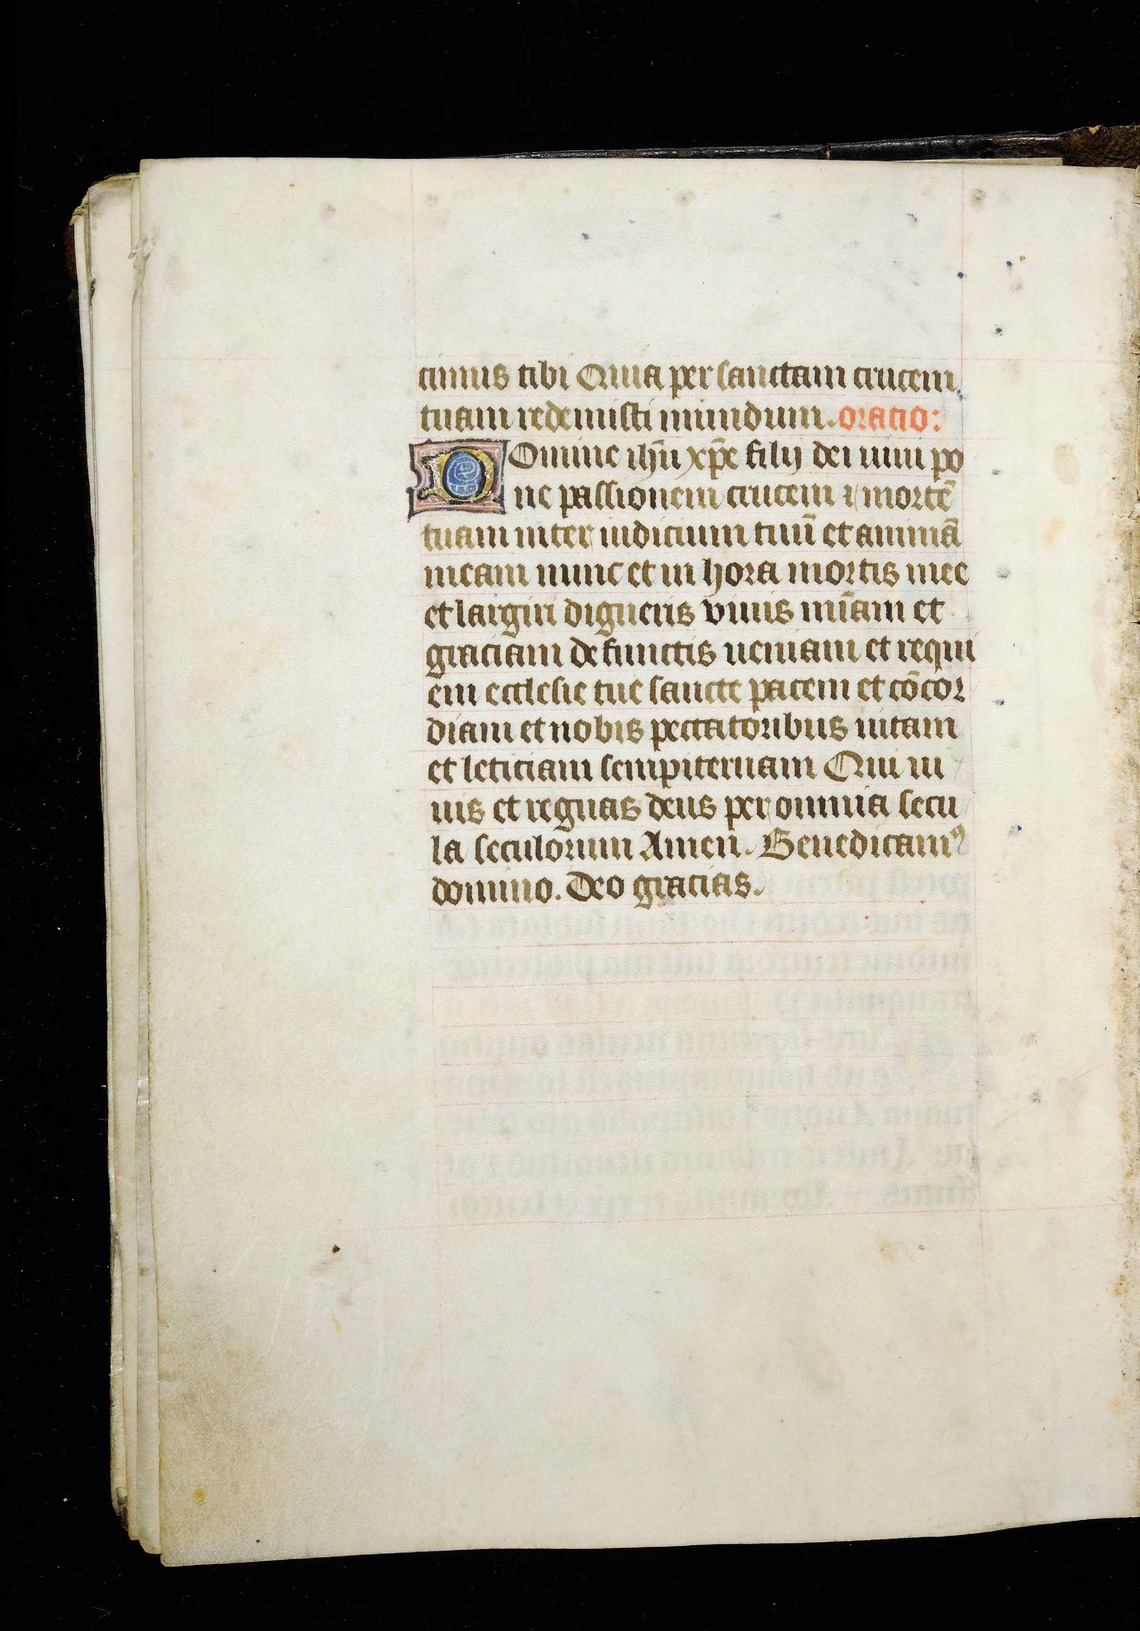 cimus tibi Quia per sanctam crucem
tuam redemisti mundum. oracio:
Domine ihū xp̄e filij dei uiui po
ne passionem crucem ⁊ mortē
tuam inter iudicium tuū et animā
meam nunc et in hora mortis mee
et largiri digneris viuis mīam et
graciam defunctis ueniam et requi
em ecclesie tue sancte pacem et cōcor
diam et nobis peccatoribus uitam
et leticiam sempiternam Qui ui
uis et regnas deus per omnia secu
la seculorum Amen. Benedicamꝰ
domino. Deo gracias.